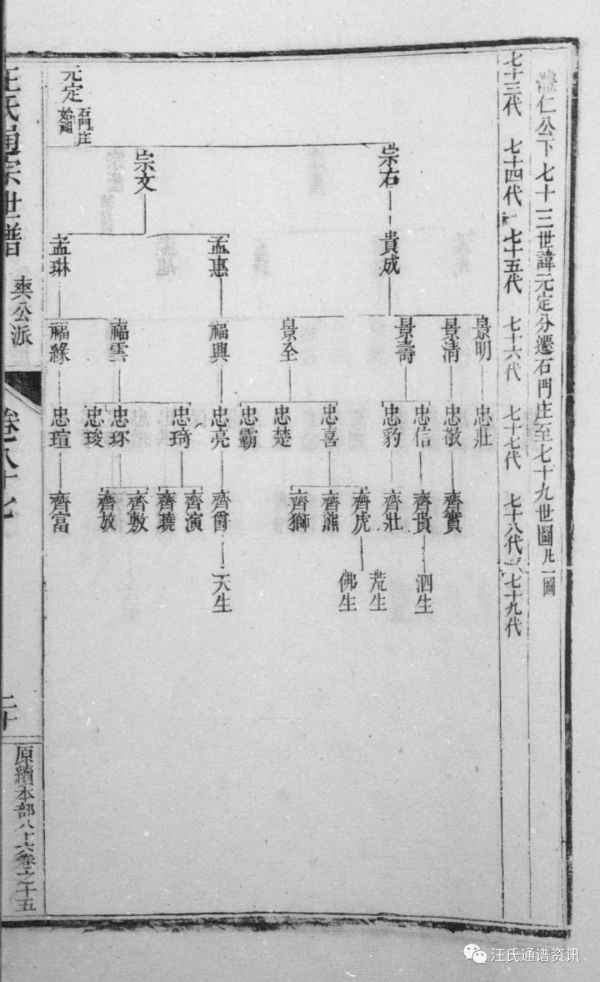 仁公下七十三世諱元定分遷石門庄至七十九世圖凡一圖
七十三代 七十四代 七十五代 七十六代 七十七代 七十八代 七十九代
元定 石門庄始祖
宗右 宗文
貴成 孟惠 孟琳
景明 景清 景壽 景全 福興 福雲 福緣
忠壯 忠敬 忠信 忠豹 忠喜 忠楚 忠霸 忠亮 忠琦 忠琢 忠琰 忠瑄
齊寳 齊貴 齊壯 齊虎 齊熊 齊獅 齊爵 齊演 齊蟯 齊敷 齊放 齊富
泗生 荒生 佛生 天生
汪氏通宗世譜
爽公派
卷八十七
二十
原續本部八十六卷之十五
汪氏通谱资讯